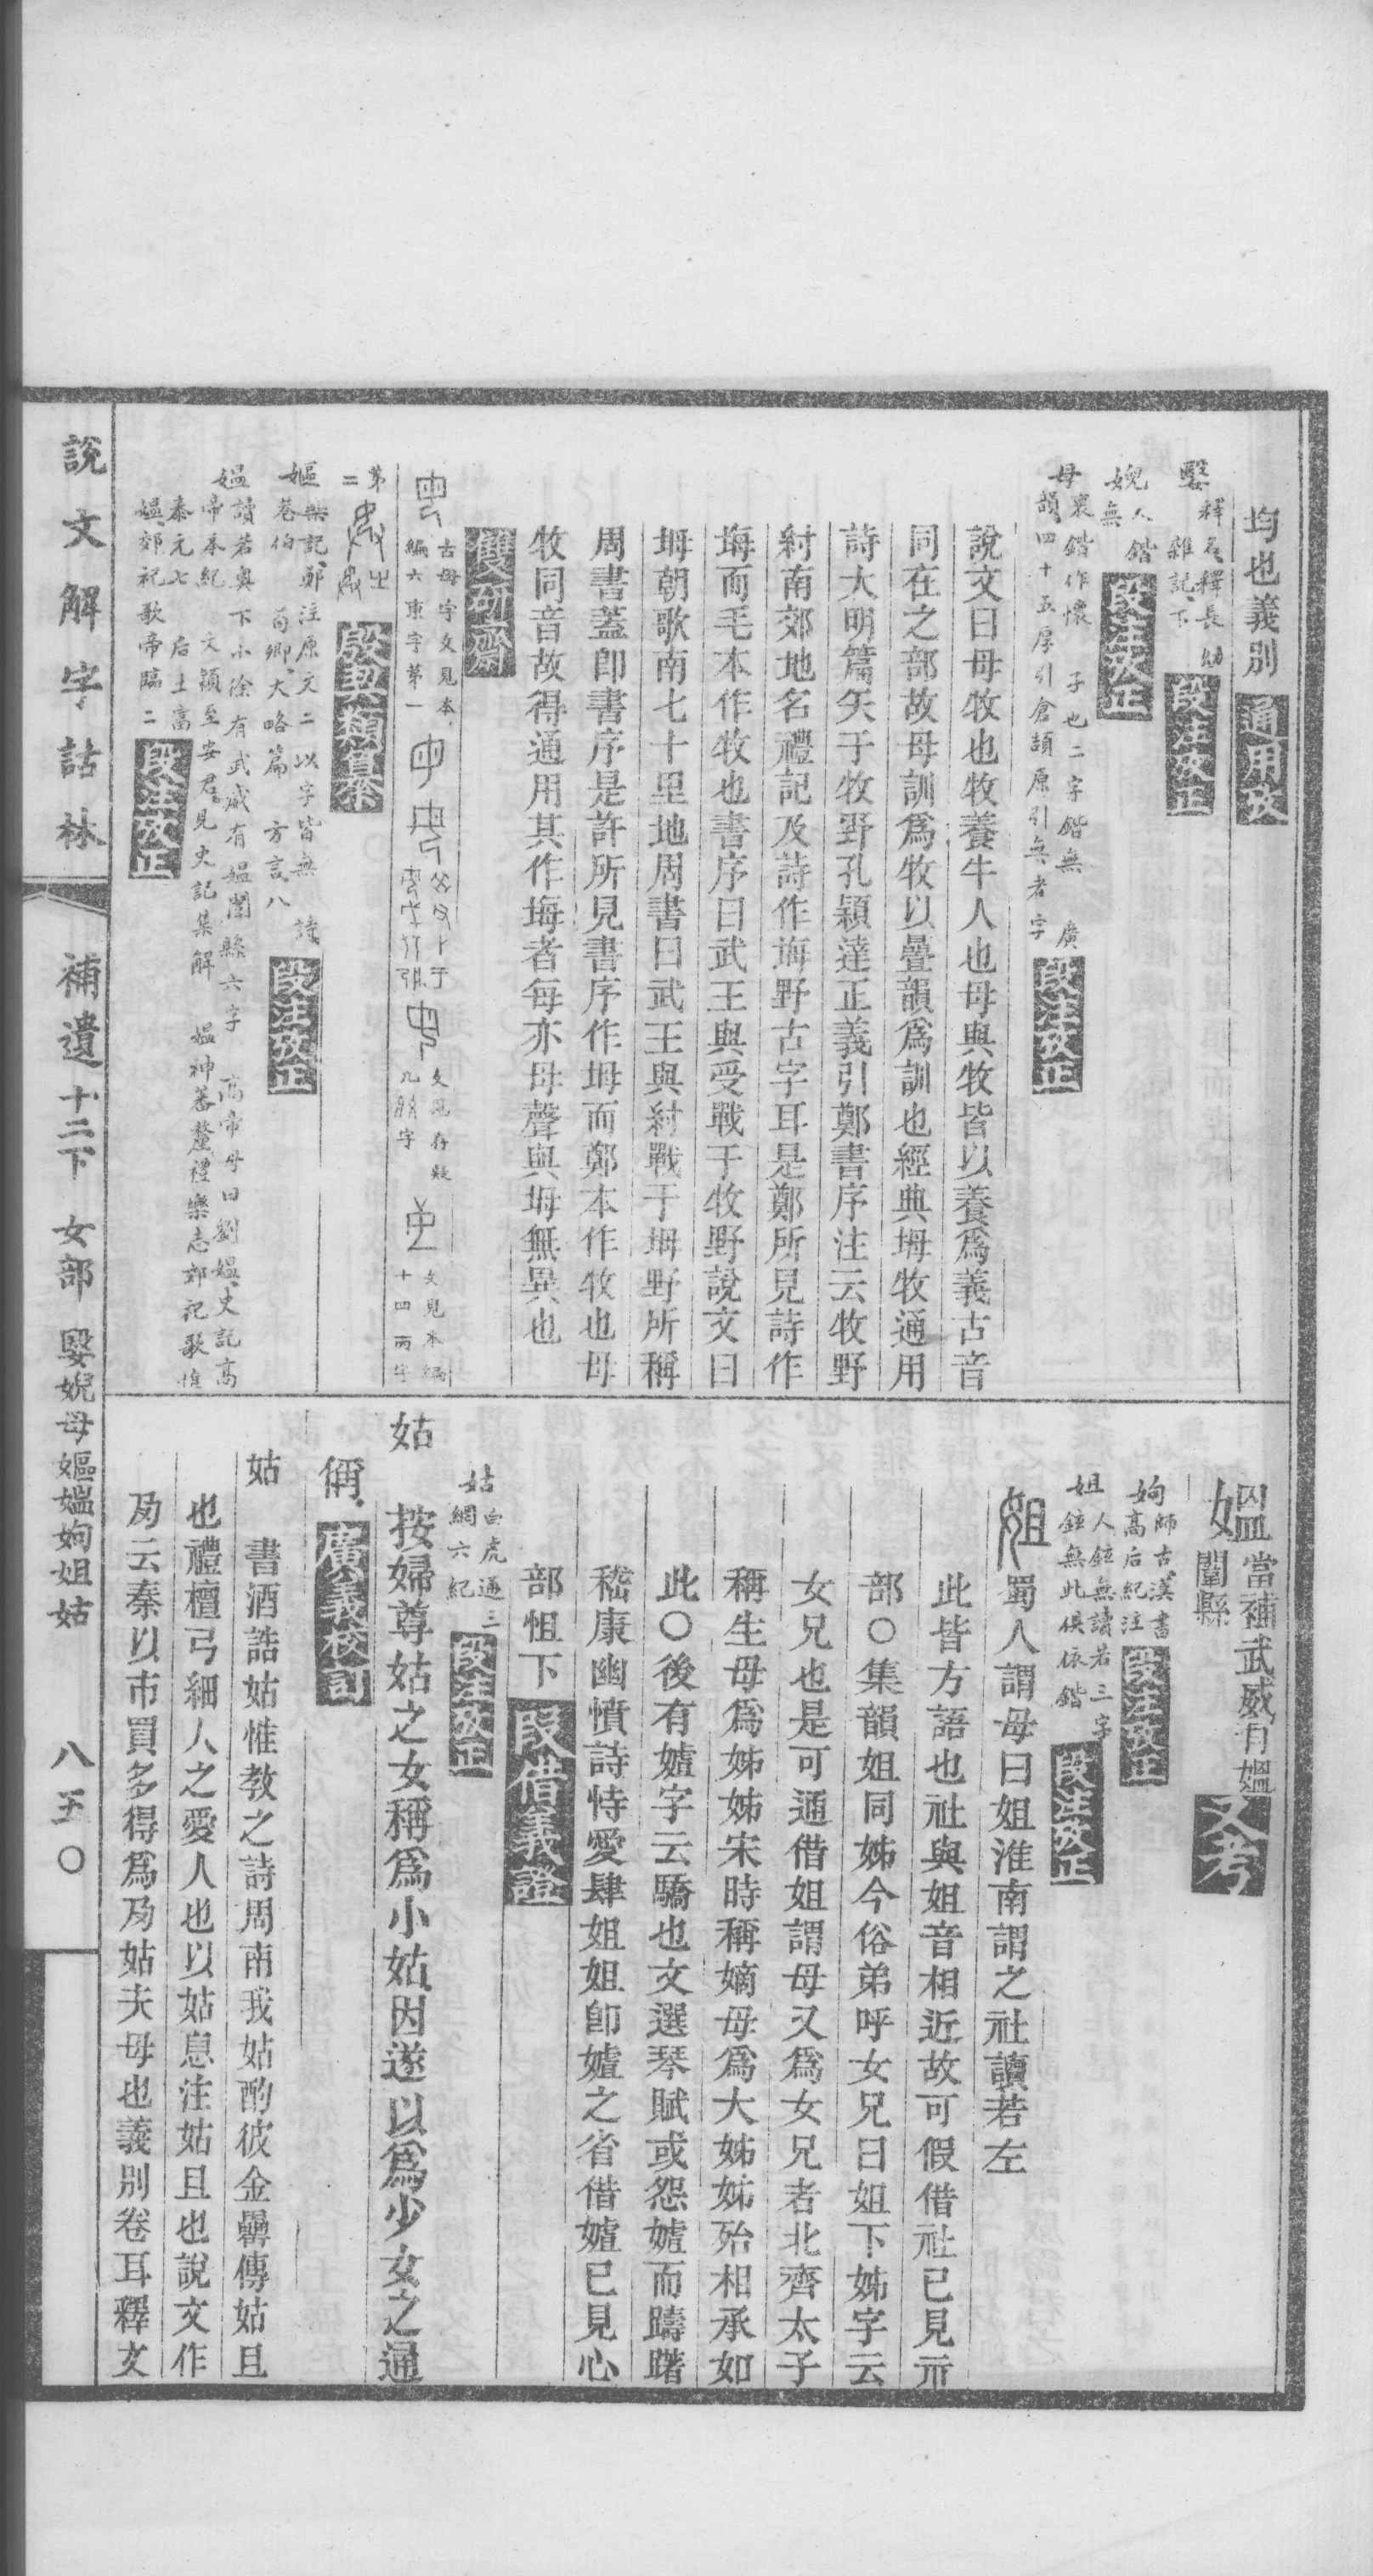 均也義別 通用攷
嫛 釋名、釋長幼
雜記、下 段注攷正
婗 人鍇
無 段注攷正
母 裹鍇作懷 子也二字鍇無 廣
韻、四十五厚引倉頡原引無者字 段注攷正
說文曰母牧也牧養牛人也母與牧皆以養爲義古音
同在之部故母訓爲牧以疊韻爲訓也經典坶牧通用
詩大明篇矢于牧野孔穎達正義引鄭書序注云牧野
紂南郊地名禮記及詩作坶野古字耳是鄭所見詩作
坶而毛本作牧也書序曰武王與受戰于牧野說文曰
坶朝歌南七十里地周書曰武王與紂戰于坶野所稱
周書蓋卽書序是許所見書序作坶而鄭本作牧也母
牧同音故得通用其作坶者每亦母聲與坶無異也
雙硏齋
古母字文見本
編六東字第一
文見存疑
文見本編
十四丙字
第二
殷契類纂
嫗 樂記、鄭注原文二以字皆無 詩、
巷伯 荀卿、大略篇 方言、八 段注攷正
媼 讀若奧下小徐有武威有媼圍縣六字 高帝母曰劉媼、史記高
帝本紀 文穎至安君、見史記集解 媼神蕃釐、禮樂志郊祀歌惟
泰元七 后土富
媼、郊祀歌帝臨二 段注攷正
媼 當補武威有媼
圍縣 文考
姁 師古、漢書
高后紀注 段注攷正
姐 人鉉無讀若三字
鉉無此俱依鍇 段注攷正
姐 蜀人謂母曰姐淮南謂之社讀若左
此皆方語也社與姐音相近故可假借社已見示
部○集韻姐同姊今俗弟呼女兄曰姐下姊字云
女兄也是可通借姐謂母又爲女兄者北齊太子
稱生母爲姊姊宋時稱嫡母爲大姊姊殆相承如
此○後有嫭字云驕也文選琴賦或怨嫭而躊躇
嵇康幽憤詩恃愛肆姐姐卽嫭之省借嫭已見心
部怚下 段借義證
姑 白虎通三
綱六紀 段注攷正
姑 按婦尊姑之女稱爲小姑、因遂以爲少女之通
偁、 廣義校訂
姑 書酒誥姑惟教之詩周南我姑酌彼金罍傳姑且
也禮檀弓細人之愛人也以姑息注姑且也說文作
夃云秦以市買多得爲夃姑夫母也義別卷耳釋文
說文解字詁林 補遺十二下 女部 嫛婗母嫗媼姁姐姑 八五〇